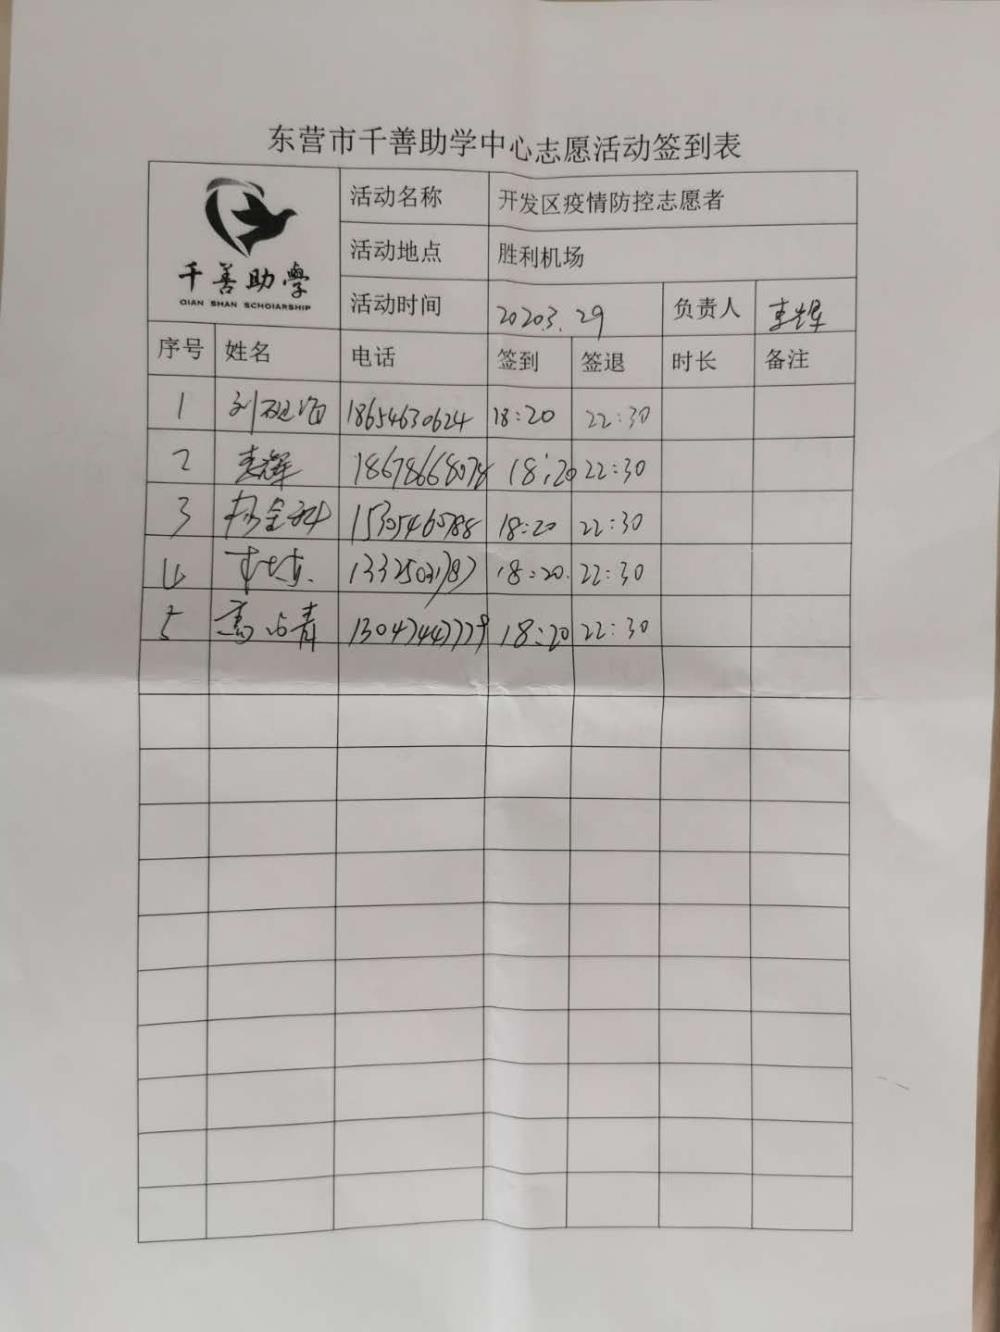 东营市千善助学中心志愿活动签到表
千善助學
QIAN SHAN SCHOIARSHIP
活动名称 开发区疫情防控志愿者
活动地点 胜利机场
活动时间 2020.3.29 负责人
序号 姓名 电话 签到 签退 时长 备注
1 18654630624 18:20 22:30
2 18678668078 18:20 22:30
3 15305460788 18:20 22:30
4 18:20 22:30
5 13047447779 18:20 22:30